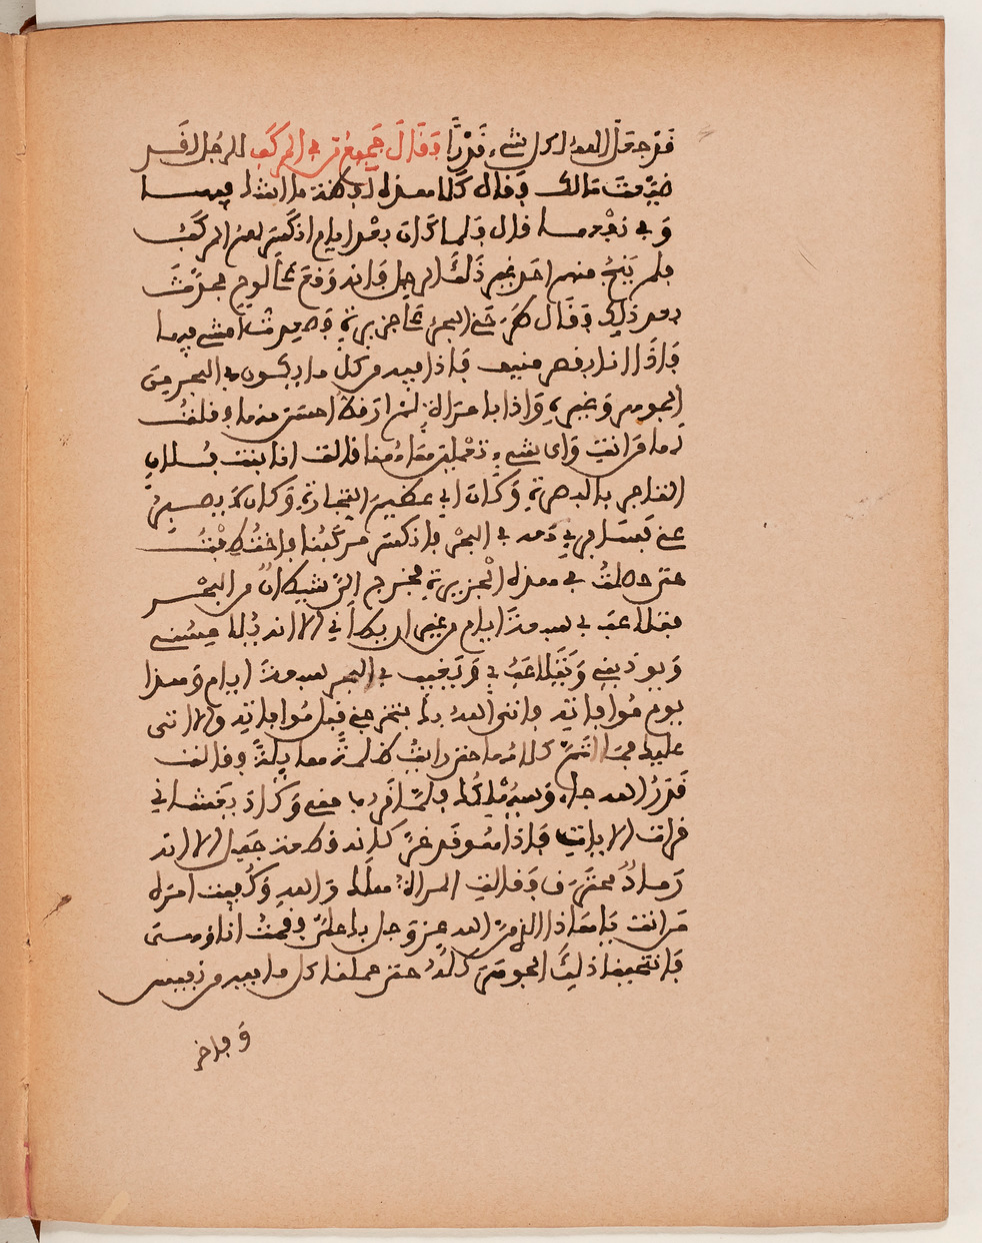 قد جعل الله لكل شيء قدرا فقال جميع من في المركب للرجل لقد
ضيعت مالك فقال كلا هذه لعظة ما أشك فيها
وفي نفعها قال فلما كان بعد أيام انكسر لهم المركب
فلم ينج منهم أحد غير ذلك الرجل فإنه وقع على لوح فحدث
بعد ذلك فقال طرحني البحر على جزيرة فصعدت أمشي فيها
فإذا أنا بقصر منيف فإذا فيه من كل ما يكون في البحر من
الجوهر وغيره وإذا بامرأة لم أر قط أحسن منها فقلت
لها من أنت وأي شيء تعملين هاهنا قالت أنا بنت فلان
التاجر بالبصرة وكان أبي عظيم التجارة وكان لا يصبر
عني فسافر بي معه في البحر فانكسر مركبنا فاختطفت
حتى حصلت في هذه الجزيرة فخرج إلي شيطان من البحر
فتلاعب بي سبعة أيام من غير أن يطأني إلا أنه يلامسني
ويوذيني ويتلاعب بي ويغيب في البحر سبعة أيام وهذا
يوم موافاته فاتق الله فلا بنفسك قبل موافاته وإلا أتى
عليك فما انقضى كلامها حتى رأيت ظلمة هايلة فقالت
قد والله جاء وسيهلكك فلما قرب مني وكاد يغشاني
قرأت الآية فإذا هو قد خر كأنه قطعة جبل إلا أنه
رماد محترق فقالت المرأة هلك والله وكفيت أمره
من أنت يا هذا الذي من الله عز وجل بك علي فقمت أنا وهي
فانتخبنا ذلك الجوهر كله حتى حملنا كل ما فيه من نفيس
وفاخر